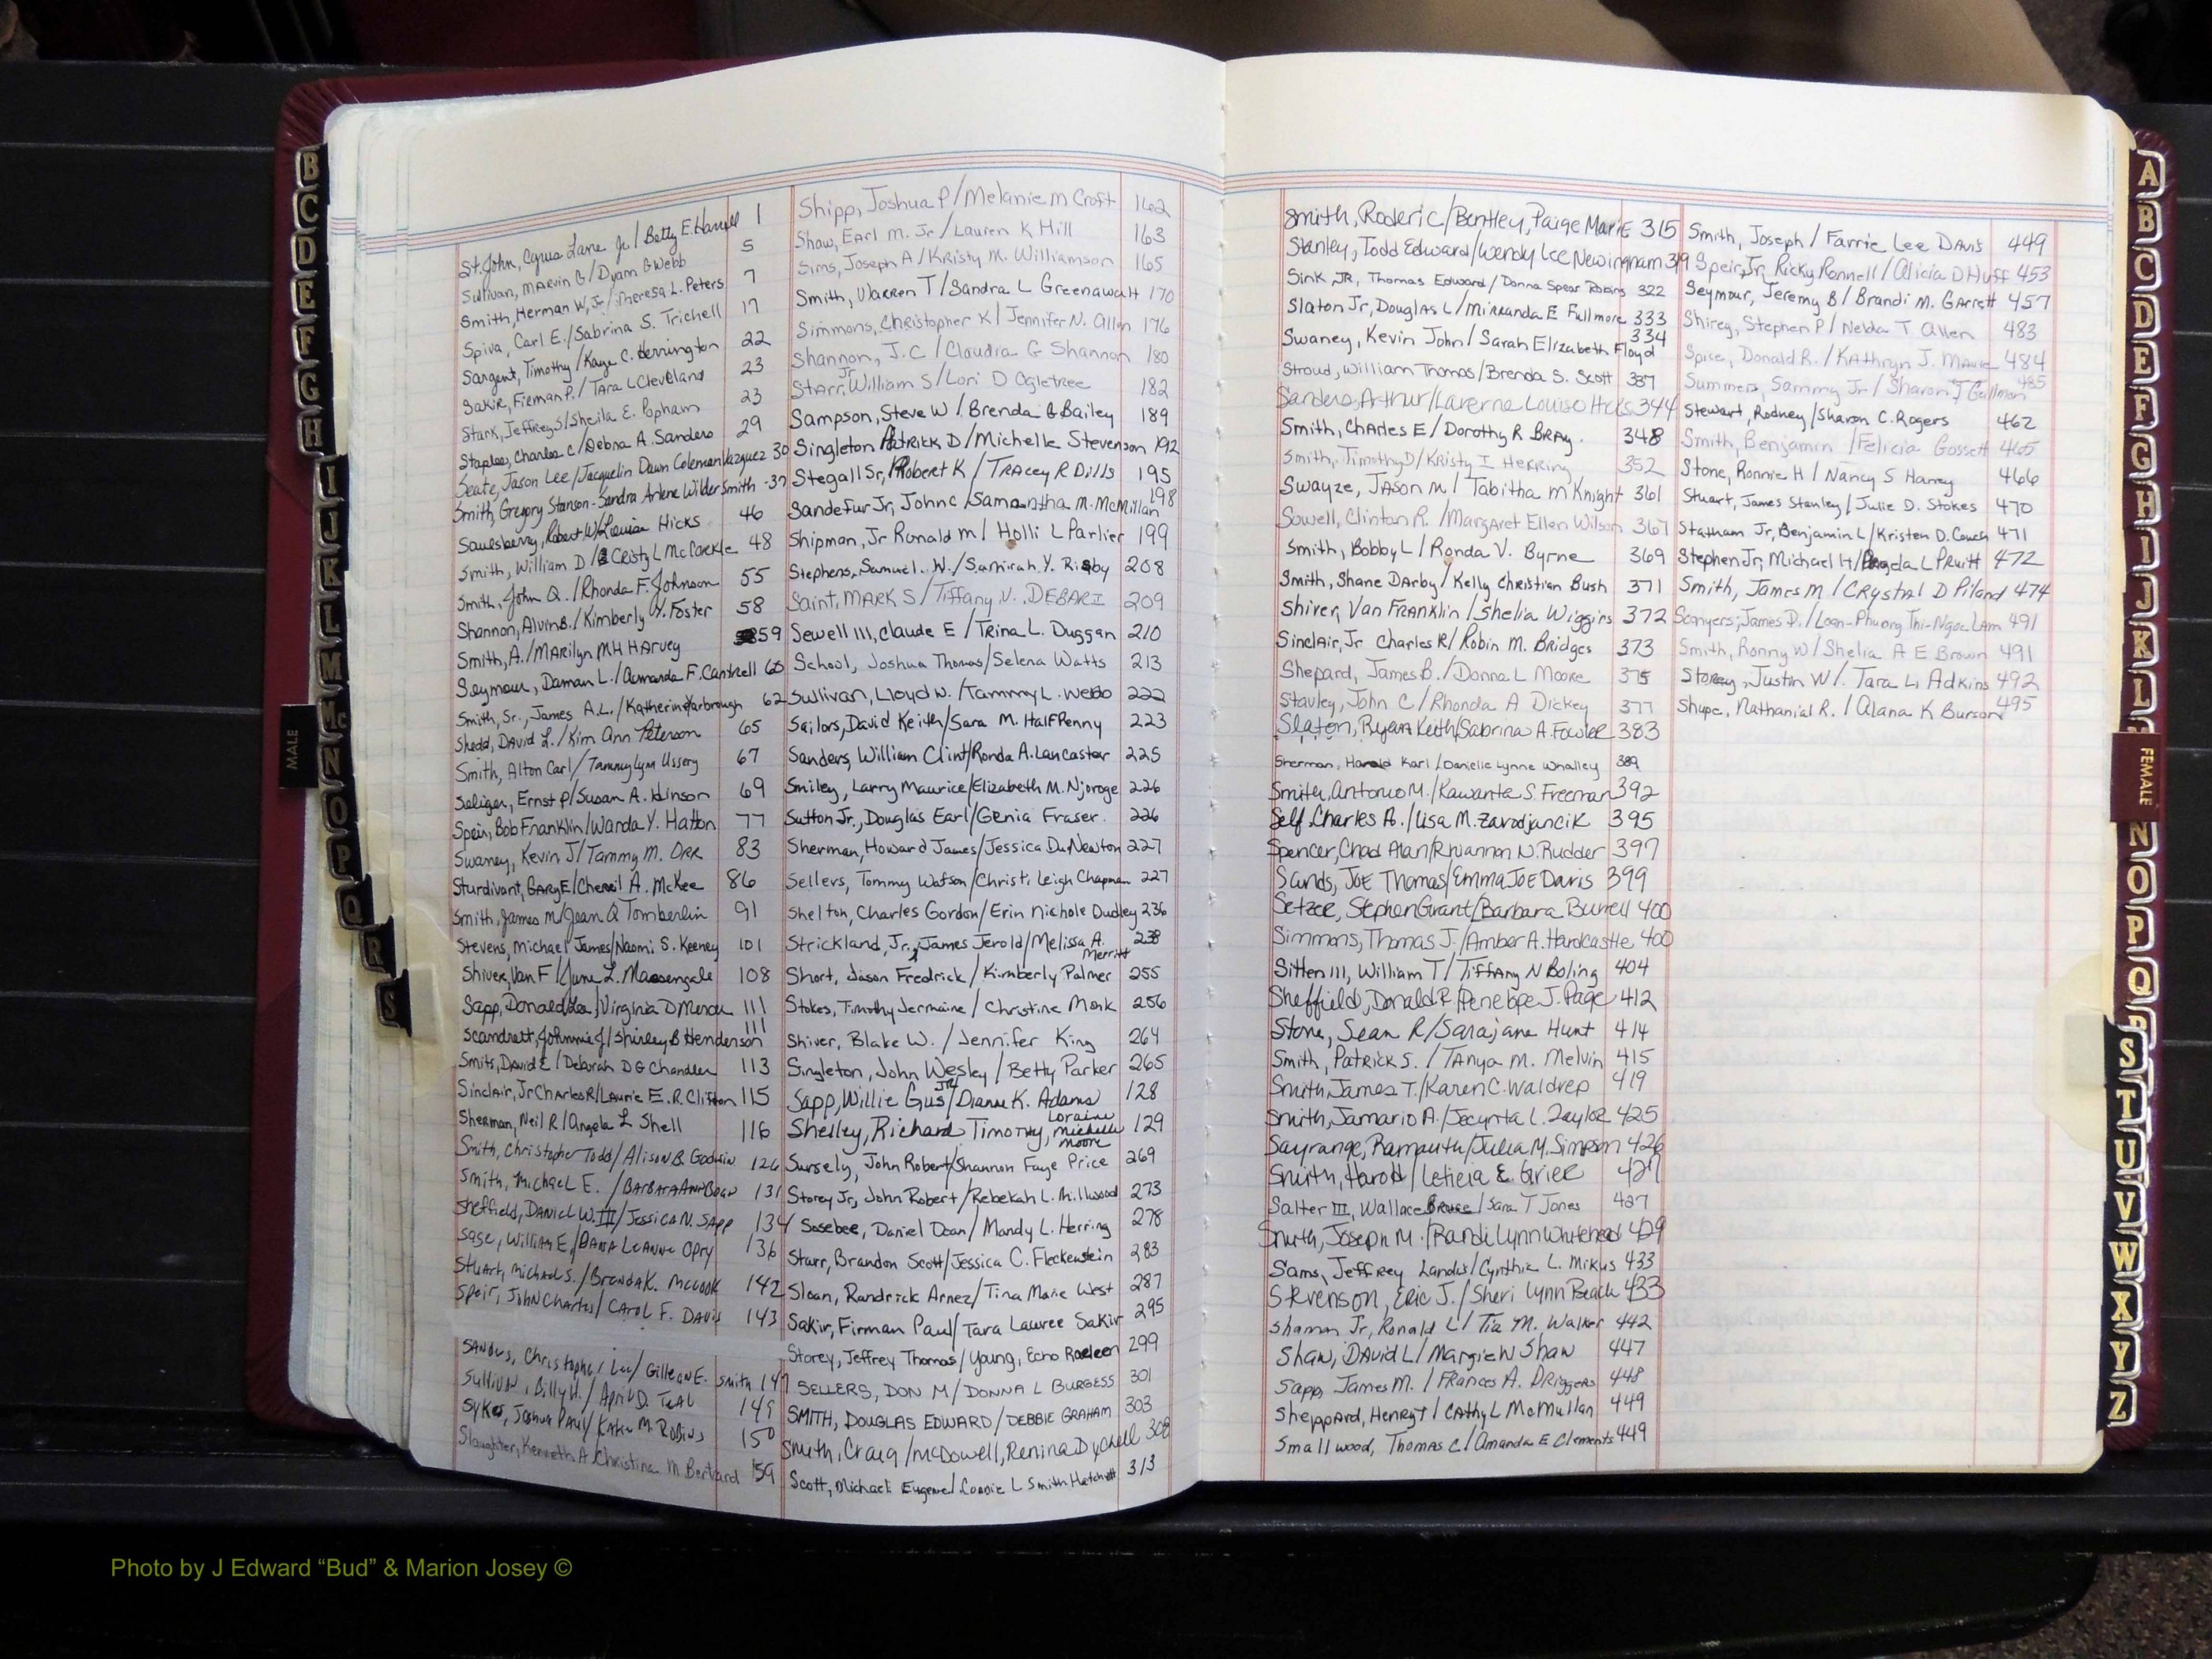 St. John, Cyrus Lane Jr / Betty E. Harrell 1
Sullivan, Marvin G / Dyann G Webb 5
Smith, Herman W, Jr / Theresa L. Peters 7
Spiva, Carl E. / Sabrina S. Trichell 17
Sargent, Timothy / Kaye C. Herrington 22
Sakir, Firman P. / Tara L Cleveland 23
Stark, Jeffrey S / Sheila E. Popham 23
Staples, Charles C / Debra A. Sanders 29
Seate, Jason Lee / Jacquelin Dawn Coleman Vazquez 30
Smith, Gregory Stanson - Sandra Arlene Wilder Smith - 37
Saulsberry, Robert W / Louisa Hicks 46
Smith, William D / Cristy L McCorkle 48
Smith, John Q. / Rhonda F. Johnson 55
Shannon, Alvin B. / Kimberly Y. Foster 58
Smith, A. / Marilyn MH Harvey 59
Seymour, Daman L. / Amanda F. Cantrell 60
Smith, Sr., James A.L. / Katherine Yarbrough 62
Shedd, David L. / Kim Ann Peterson 65
Smith, Alton Carl / Tammy Lynn Ussery 67
Seliger, Ernst P / Susan A. Hinson 69
Speir, Bob Franklin / Wanda Y. Hatton 77
Swaney, Kevin J / Tammy M. Orr 83
Sturdivant, Gary E / Cheneil A. McKee 86
Smith, James M / Jean Q Tomberlin 91
Stevens, Michael James / Naomi S. Keeney 101
Shiver, Van F / June L. Massengale 108
Sapp, Donald Lee / Virginia D 111
Scandrett, Johnnie J / Shirley B Henderson 111
Smith, David E / Deborah D G Chandler 113
Sinclair, Jr Charles R / Laurie E. R. Clifton 115
Sherman, Neil R / Angela L Shell 116
Smith, Christopher Todd / Alison B. Godwin 126
Smith, Michael E. / Barbara Ann 131
Sheffield, Daniel W. III / Jessica N. Sapp 134
Sage, William E. / Dana LeAnne Opry 136
Stuart, Michael S. / Brenda K. McCook 142
Speir, John Charles / Carol F. Davis 143
Sanders, Christopher Lee / Gillean E. Smith 147
Sullivan, Billy H. / April D. Teal 149
Sykes, Joshua Paul / Katie M. Robins 150
Slaughter, Kenneth A / Christina M Bertrand 159
Shipp, Joshua P / Melanie M Croft 162
Shaw, Earl M. Jr / Lauren K Hill 163
Sims, Joseph A / Kristy M. Williamson 165
Smith, Warren T / Sandra L Greenawalt 170
Simmons, Christopher K / Jennifer N. Allen 176
Shannon, J.C / Claudia G Shannon 180
Starr, Jr William S / Lori D Ogletree 182
Sampson, Steve W / Brenda G Bailey 189
Singleton Patrick D / Michelle Stevenson 192
Stegall Sr, Robert K / Tracey R Dills 195
Sandefur Jr, John C / Samantha M. McMillan 198
Shipman, Jr Ronald M / Holli L Parlier 199
Stephens, Samuel. W. / Samirah Y. Rigby 208
Saint, Mark S / Tiffany N. DEBARI 209
Sewell III, Claude E / Trina L. Duggan 210
School, Joshua Thomas / Selena Watts 213
Sullivan, Lloyd W. / Tammy L. Webb 222
Sailors, David Keith / Sara M. HalfPenny 223
Sanders, William Clint / Ronda A. Lancaster 225
Smiley, Larry Maurice / Elizabeth M. Njoroge 226
Sutton Jr., Douglas Earl / Genia Fraser. 226
Sherman, Howard James / Jessica Du Newton 227
Sellers, Tommy Watson / Christi Leigh Chapman 227
Shelton, Charles Gordon / Erin Nichole Dudley 236
Strickland, Jr., James Jerold / Melissa A. Merritt 238
Short, Jason Fredrick / Kimberly Palmer 255
Stokes, Timothy Jermaine / Christine Monk 256
Shiver, Blake W. / Jennifer King 264
Singleton, John Wesley / Betty Parker 265
Sapp, Willie Gus JR / Dianne K. Adams 128
Shelley, Richard Timothy, Loraine Michelle Moore 129
Sursely, John Robert / Shannon Faye Price 269
Storey Jr, John Robert / Rebekah L. Millwood 273
Sosebee, Daniel Dean / Mandy L. Herring 278
Starr, Brandon Scott / Jessica C. Fleckenstein 283
Sloan, Randrick Arnez / Tina Marie West 287
Sakir, Firman Paul / Tara Lauree Sakir 295
Storey, Jeffrey Thomas / Young, Echo Raeleen 299
SELLERS, DON M / DONNA L BURGESS 301
SMITH, DOUGLAS EDWARD / DEBBIE GRAHAM 303
Smith, Craig / McDowell, Renina Dychell 308
Scott, Michael Eugene / Connie L Smith Hatchett 313
Smith, Roderic / Bentley, Paige Marie 315
Stanley, Todd Edward / Wendy Lee Newingham 319
Sink, JR, Thomas Edward / Donna Spear Robins 322
Slaton Jr, Douglas L / Miranda E Fullmore 333
Swaney, Kevin John / Sarah Elizabeth Floyd 334
Stroud, William Thomas / Brenda S. Scott 337
Sanders, Arthur / Laverne Louise Hicks 344
Smith, Charles E / Dorothy R Bray. 348
Smith, Timothy D / Kristy I Herring 352
Swayze, Jason M / Tabitha M Knight 361
Sowell, Clinton R. / Margaret Ellen Wilson 367
Smith, Bobby L / Ronda V. Byrne 369
Smith, Shane Darby / Kelly Christian Bush 371
Shirer, Van Franklin / Shelia Wiggins 372
Sinclair, Jr Charles R / Robin M. Bridges 373
Shepard, James B. / Donna L Moore 375
Stavley, John C / Rhonda A Dickey 377
Slaton, Ryan Keith / Sabrina A. Fowler 383
Sherman, Harold Karl / Danielle Lynne Whalley 389
Smith, Antonio M. / Kawanta S. Freeman 392
Self, Charles A. / Lisa M. Zavodjancik 395
Spencer, Chad Alan / Rhiannon N. Rudder 397
Sands, Joe Thomas / Emma Joe Davis 399
Setzer, Stephen Grant / Barbara Burrell 400
Simmons, Thomas J. / Amber A. Hardcastle 400
Sitten III, William T / Tiffany N Boling 404
Sheffield, Donald R. / Penelope J. Page 412
Stone, Sean R / Sarajane Hunt 414
Smith, Patrick S. / Tanya M. Melvin 415
Smith, James T. / Karen C. Waldrep 419
Smith, Jamario A. / Jacynta L. Taylor 425
Sayrange, Ramputh / Julia M. Simpson 426
Smith, Harold / Leticia E. Grier 427
Salter III, Wallace Bruce / Sara T Jones 427
Smith, Joseph M. / Randi Lynn Whitehead 429
Sams, Jeffrey Landis / Cynthia L. Mikus 433
Stevenson, Eric J. / Sheri Lynn Beach 433
Shaman Jr, Ronald L / Tia M. Walker 442
Shaw, David L / Margie W Shaw 447
Sapp, James M. / Frances A. Driggers 448
Sheppard, Henry T / Cathy L McMullan 449
Smallwood, Thomas C / Amanda E Clements 449
Smith, Joseph / Farrie Lee Davis 449
Speir, Jr, Ricky Ronnell / Alicia D Huff 453
Seymour, Jeremy B / Brandi M. Garrett 457
Shirey, Stephen P / Nelda T Allen 483
Spise, Donald R. / Kathryn J. 484
Summers, Sammy Jr / Sharon J Gullman 485
Stewart, Rodney / Sharon C. Rogers 462
Smith, Benjamin / Felicia Gossett 465
Stone, Ronnie H / Nancy S Haney 466
Stuart, James Stanley / Julie D. Stokes 470
Statham Jr, Benjamin L / Kristen D. Couch 471
Stephen Jr, Michael H / Angela L Pruitt 472
Smith, James M / Crystal D Piland 474
Sconyers, James D. / Loan-Phuong Thi-Ngoc Lam 491
Smith, Ronny W / Shelia A E Brown 491
Storey, Justin W / Tara L Adkins 492
Shupe, Nathanial R. / Alana K Burson 495
B
C
D
E
F
G
H
I
J
K
L
M
Mc
N
O
P
Q
R
S
MALE
A
B
C
D
E
F
G
H
I
J
K
L
FEMALE
N
O
P
Q
R
S
T
U
V
W
X
Y
Z
Photo by J Edward “Bud” & Marion Josey ©